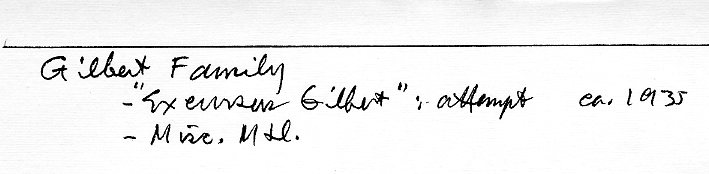 Gilbert Family
- "Excursus Gilbert": attempt ca. 1935
- Misc. Mtl.